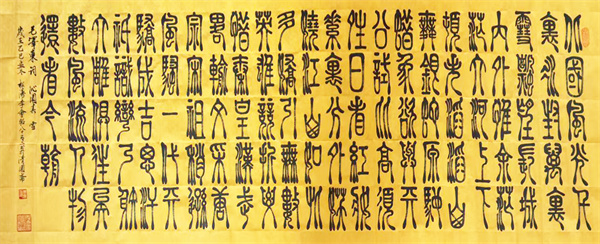 北國風光千
裏冰封萬裏
雪飄望長城
內外惟餘莽
莽大河上下
頓失滔滔山
舞銀蛇原馳
蠟象欲與天
公試比高須
晴日看紅裝
素裹分外妖
嬈江山如此
多嬌引無數
英雄競折腰
惜秦皇漢武
略輸文采唐
宗宋祖稍遜
風騷一代天
驕成吉思汗
只識彎弓射
大雕俱往矣
數風流人物
還看今朝
毛澤東詞 沁園春 雪